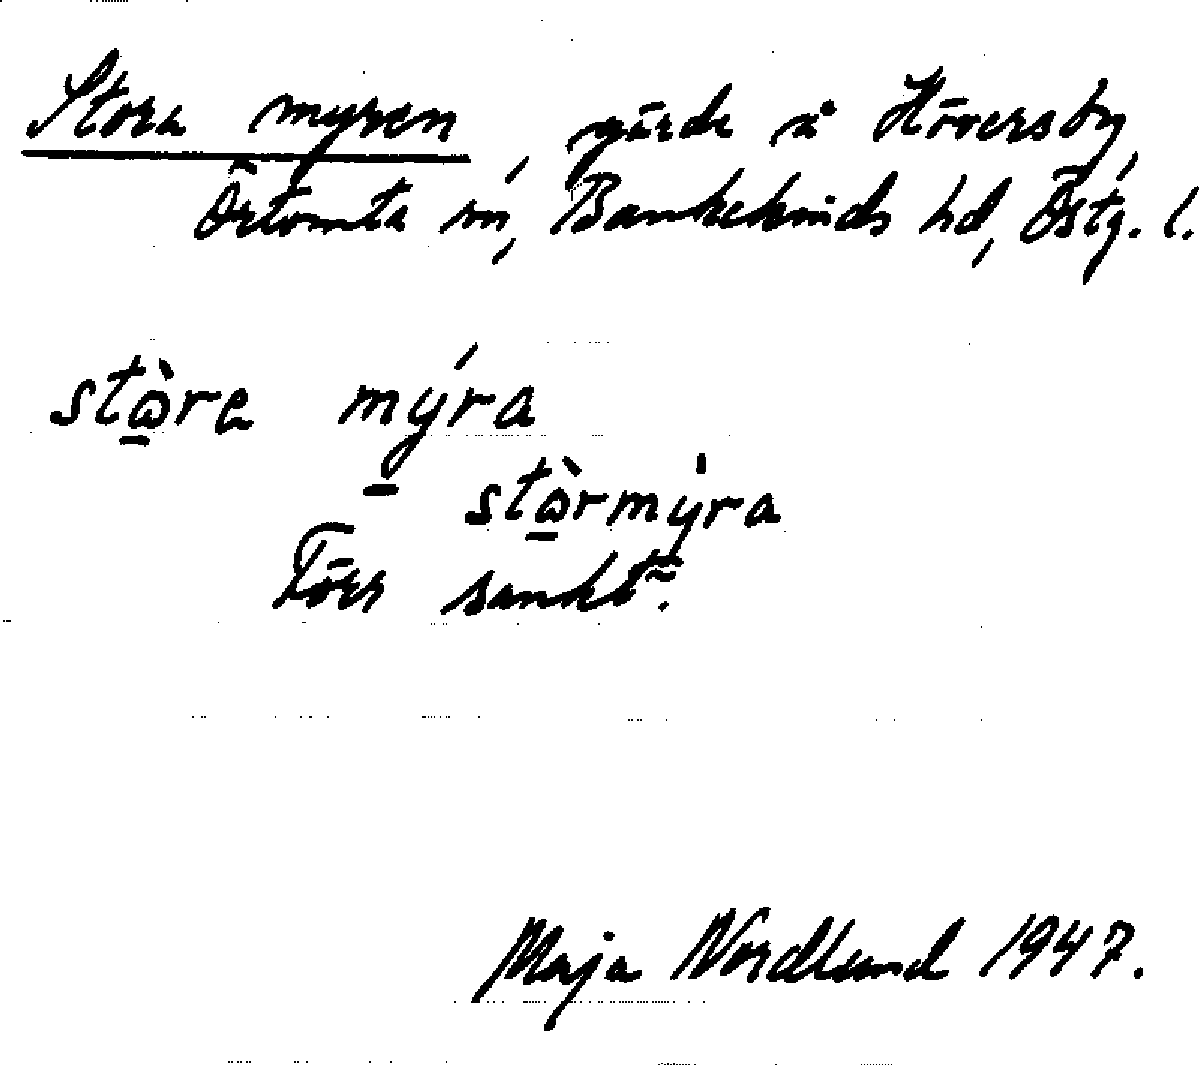 Stora myren, gärde å Höversby,
Örtomta sn, Bankekinds hd, Östg. l.
stὼ̱re mý̱ra
stὼ̱rmy̍ra
Förr sankt.
Maja Nordlund 1947.